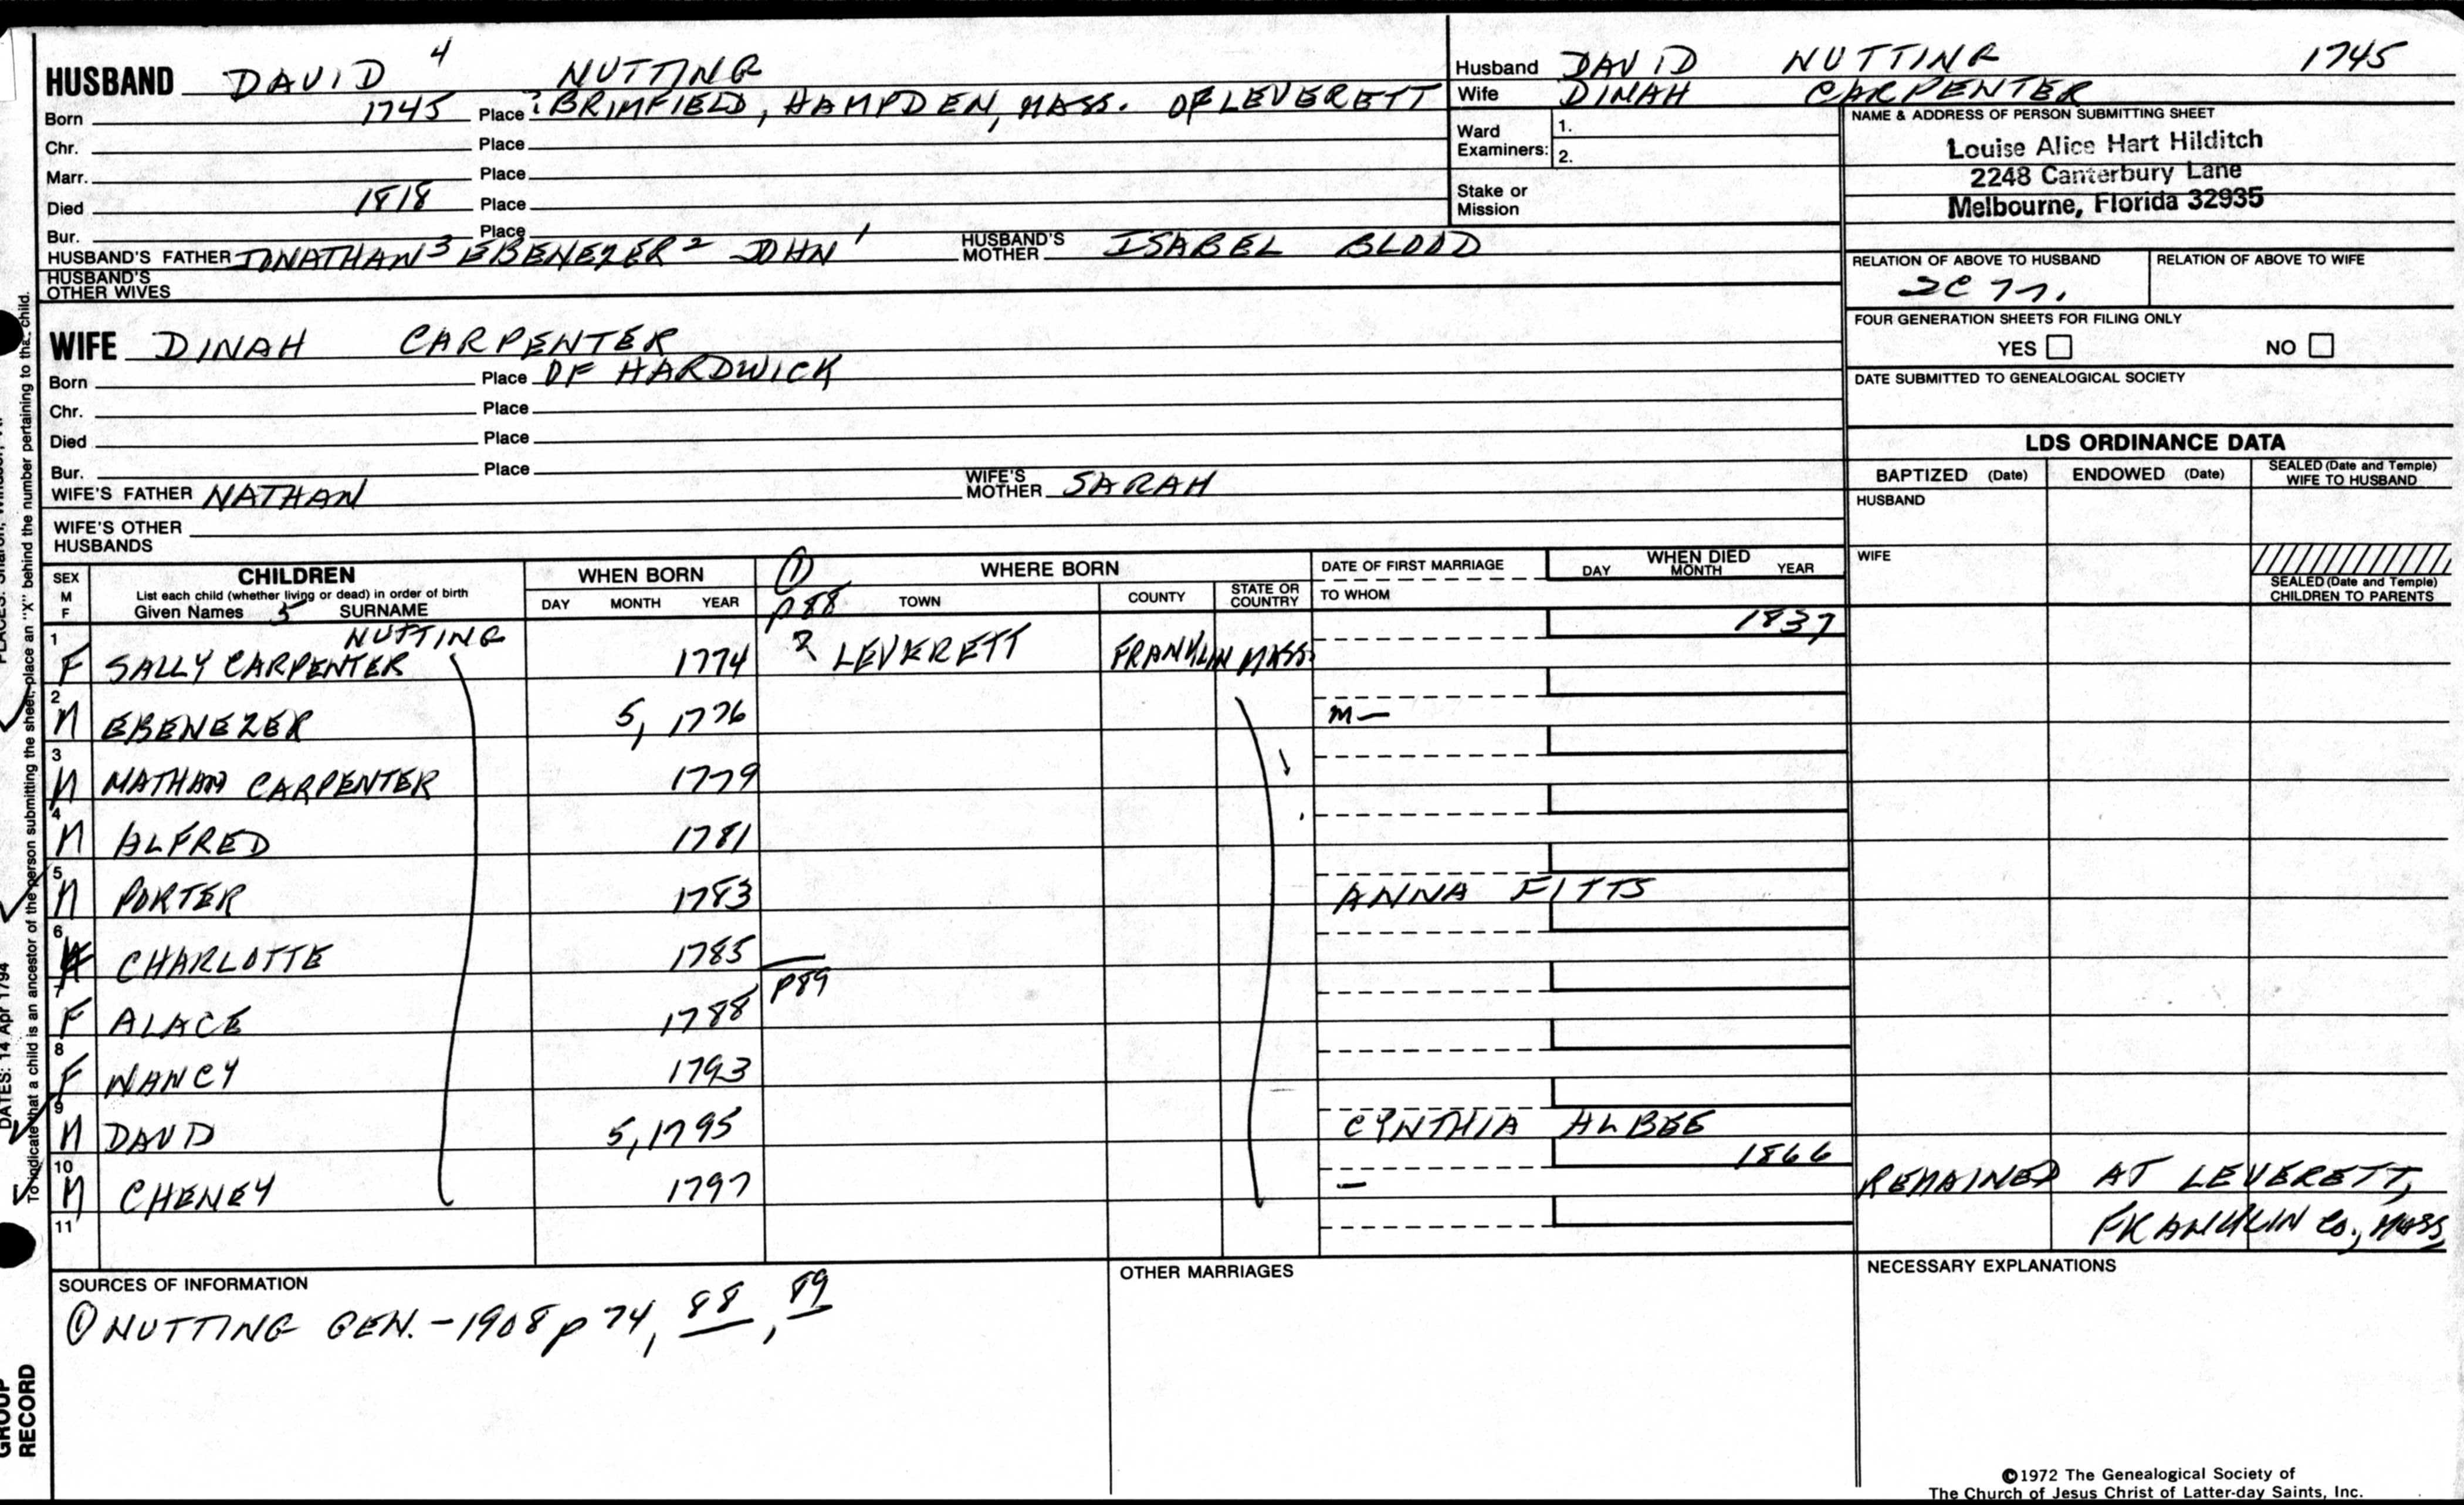 HUSBAND DAVID 4 NUTTING
Born 1745 Place ? BRIMFIELD, HAMPDEN, MASS. OF LEVERETT
Chr. Place
Marr. Place
Died 1818 Place
Bur. Place
HUSBAND'S FATHER JONATHAN 3 EBENEZER 2 JOHN 1 HUSBAND'S MOTHER ISABEL BLOOD
HUSBAND'S OTHER WIVES
Husband DAVID NUTTING 1745
Wife DINAH CARPENTER
Ward Examiners: 1.
2.
Stake or Mission
NAME & ADDRESS OF PERSON SUBMITTING SHEET
Louise Alice Hart Hilditch
2248 Canterbury Lane
Melbourne, Florida 32935
RELATION OF ABOVE TO HUSBAND RELATION OF ABOVE TO WIFE
FOUR GENERATION SHEETS FOR FILING ONLY
YES NO
DATE SUBMITTED TO GENEALOGICAL SOCIETY
WIFE DINAH CARPENTER
Born Place OF HARDWICK
Chr. Place
Died Place
Bur. Place
WIFE'S FATHER NATHAN WIFE'S MOTHER SARAH
WIFE'S OTHER HUSBANDS
LDS ORDINANCE DATA
BAPTIZED (Date) ENDOWED (Date) SEALED (Date and Temple) WIFE TO HUSBAND
HUSBAND
WIFE
SEALED (Date and Temple) CHILDREN TO PARENTS
SEX M F CHILDREN WHEN BORN ① WHERE BORN DATE OF FIRST MARRIAGE WHEN DIED
List each child (whether living or dead) in order of birth
Given Names 5 SURNAME DAY MONTH YEAR p88 TOWN COUNTY STATE OR COUNTRY TO WHOM DAY MONTH YEAR
NUTTING 1837
1 F SALLY CARPENTER 1774 ? LEVERETT FRANKLIN MASS.
2 M EBENEZER 5, 1776 m—
3 M NATHAN CARPENTER 1779
4 M ALFRED 1781
5 M PORTER 1783 ANNA FITTS
6 CHARLOTTE 1785
7 F ALACE 1788 p89
8 F NANCY 1793
9 M DAVID 5, 1795 CYNTHIA ALBEE
1866
10 M CHENEY 1797 — REMAINED AT LEVERETT,
FRANKLIN Co., MASS.
11
SOURCES OF INFORMATION
① NUTTING GEN. - 1908 p 74, 88, 89
OTHER MARRIAGES
NECESSARY EXPLANATIONS
©1972 The Genealogical Society of
The Church of Jesus Christ of Latter-day Saints, Inc.
To indicate that a child is an ancestor of the person submitting the sheet, place an "X" behind the number pertaining to that child.
DATES: 14 Apr 1794
GROUP
RECORD